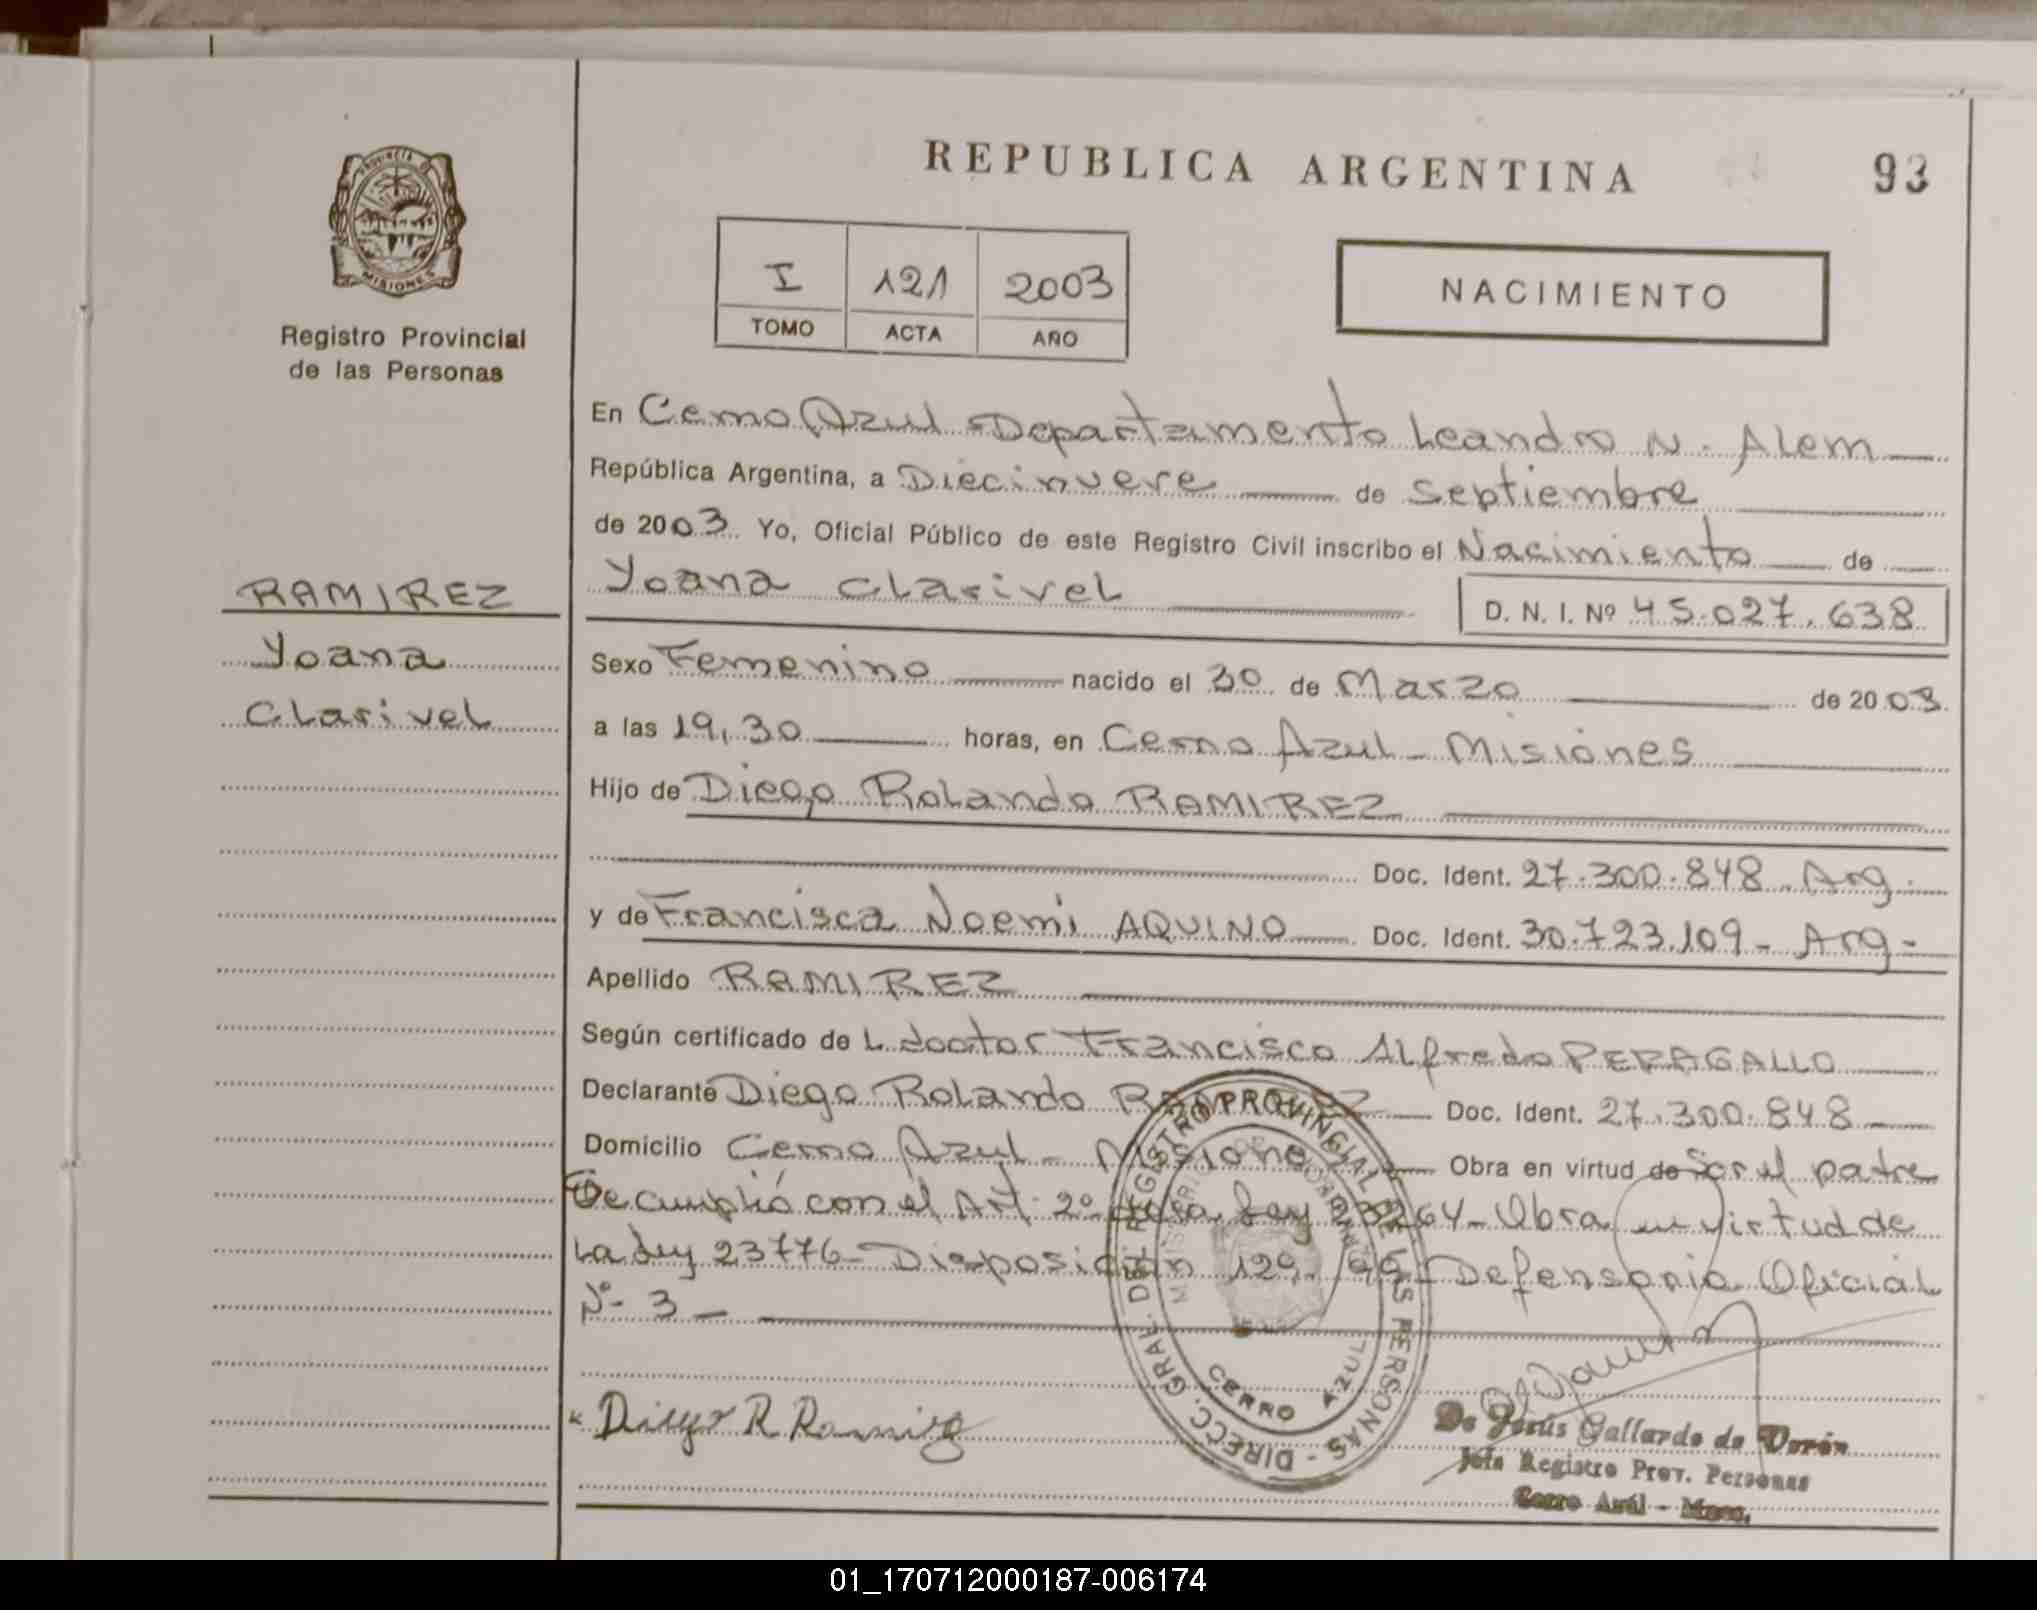 PROVINCIA D
MISIONES
Registro Provincial
de las Personas
RAMIREZ
Yoana
Clarivel
REPUBLICA ARGENTINA
93
I 121 2003
TOMO ACTA AÑO
NACIMIENTO
En Cerro Azul - Departamento Leandro N. Alem
República Argentina, a Diecinueve de septiembre
de 2003 Yo, Oficial Público de este Registro Civil inscribo el Nacimiento de
Yoana Clarivel
D. N. I. Nº 45.027.638
Sexo Femenino nacido el 30 de Marzo de 2003
a las 19,30 horas, en Cerro Azul - Misiones
Hijo de Diego Rolando RAMIREZ
Doc. Ident. 27.300.848 - Arg -
y de Francisca Noemi AQUINO Doc. Ident. 30.723.109 - Arg -
Apellido RAMIREZ
Según certificado de L doctor Francisco Alfredo PERAGALLO
Declarante Diego Rolando RAMIREZ Doc. Ident. 27.300.848
Domicilio Cerro Azul - Misiones Obra en virtud de Ser el padre
Se cumplió con el Art. 2º de la Ley 64 - Obra en virtud de
la Ley 23776 - Disposición 129/99 - Defensoria Oficial
Nº 3 -
Diego R Ramirez
DIRECC. GRAL. DEL REGISTRO PROVINCIAL DE LAS PERSONAS -
CERRO AZUL
De Jesús Gallardo de Durán
Jefa Registro Prov. Personas
Cerro Azul - Mnes.
01_170712000187-006174